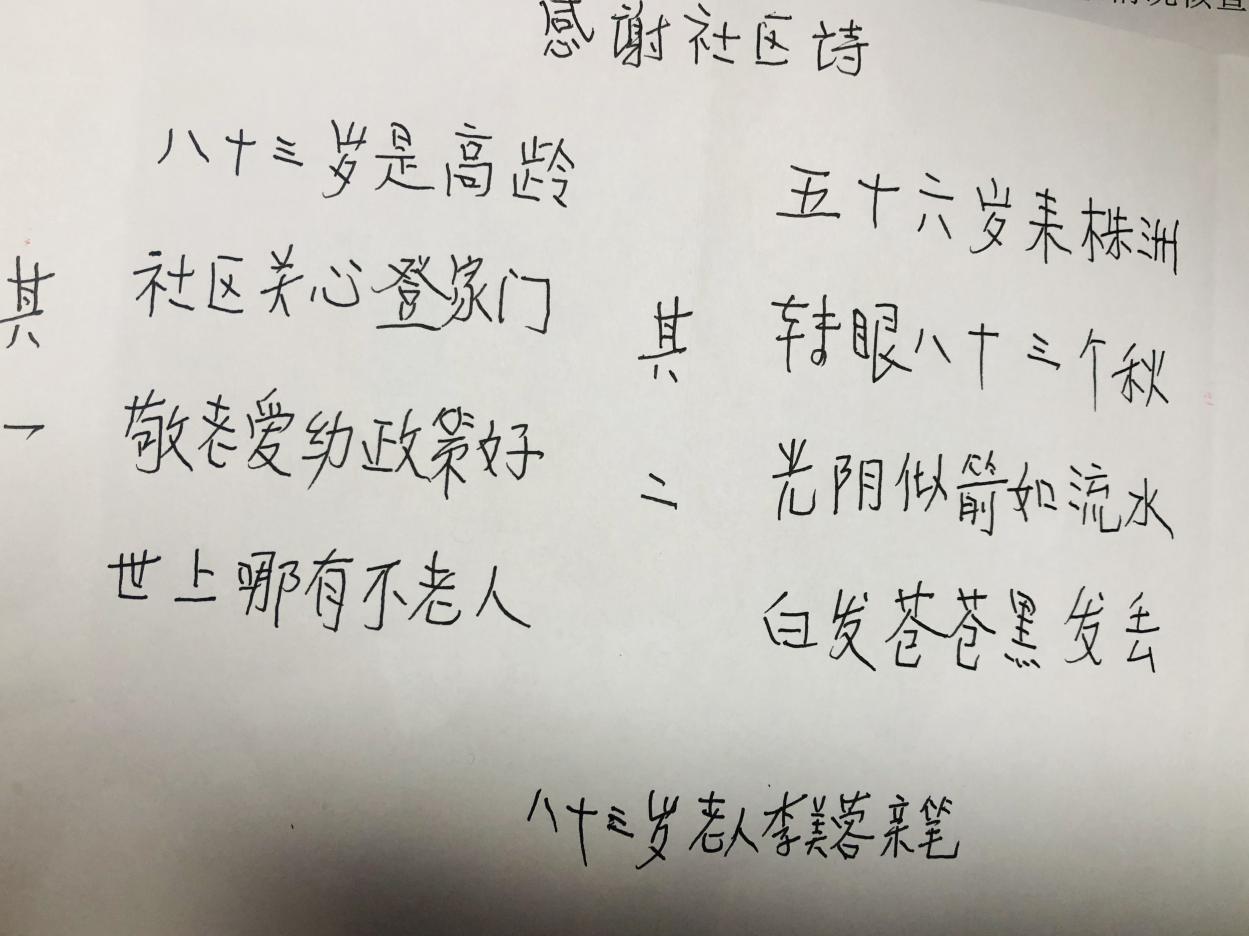 感谢社区诗
其一
八十三岁是高龄
社区关心登家门
敬老爱幼政策好
世上哪有不老人
其二
五十六岁来株洲
转眼八十三个秋
光阴似箭如流水
白发苍苍黑发丢
八十三岁老人李美蓉亲笔